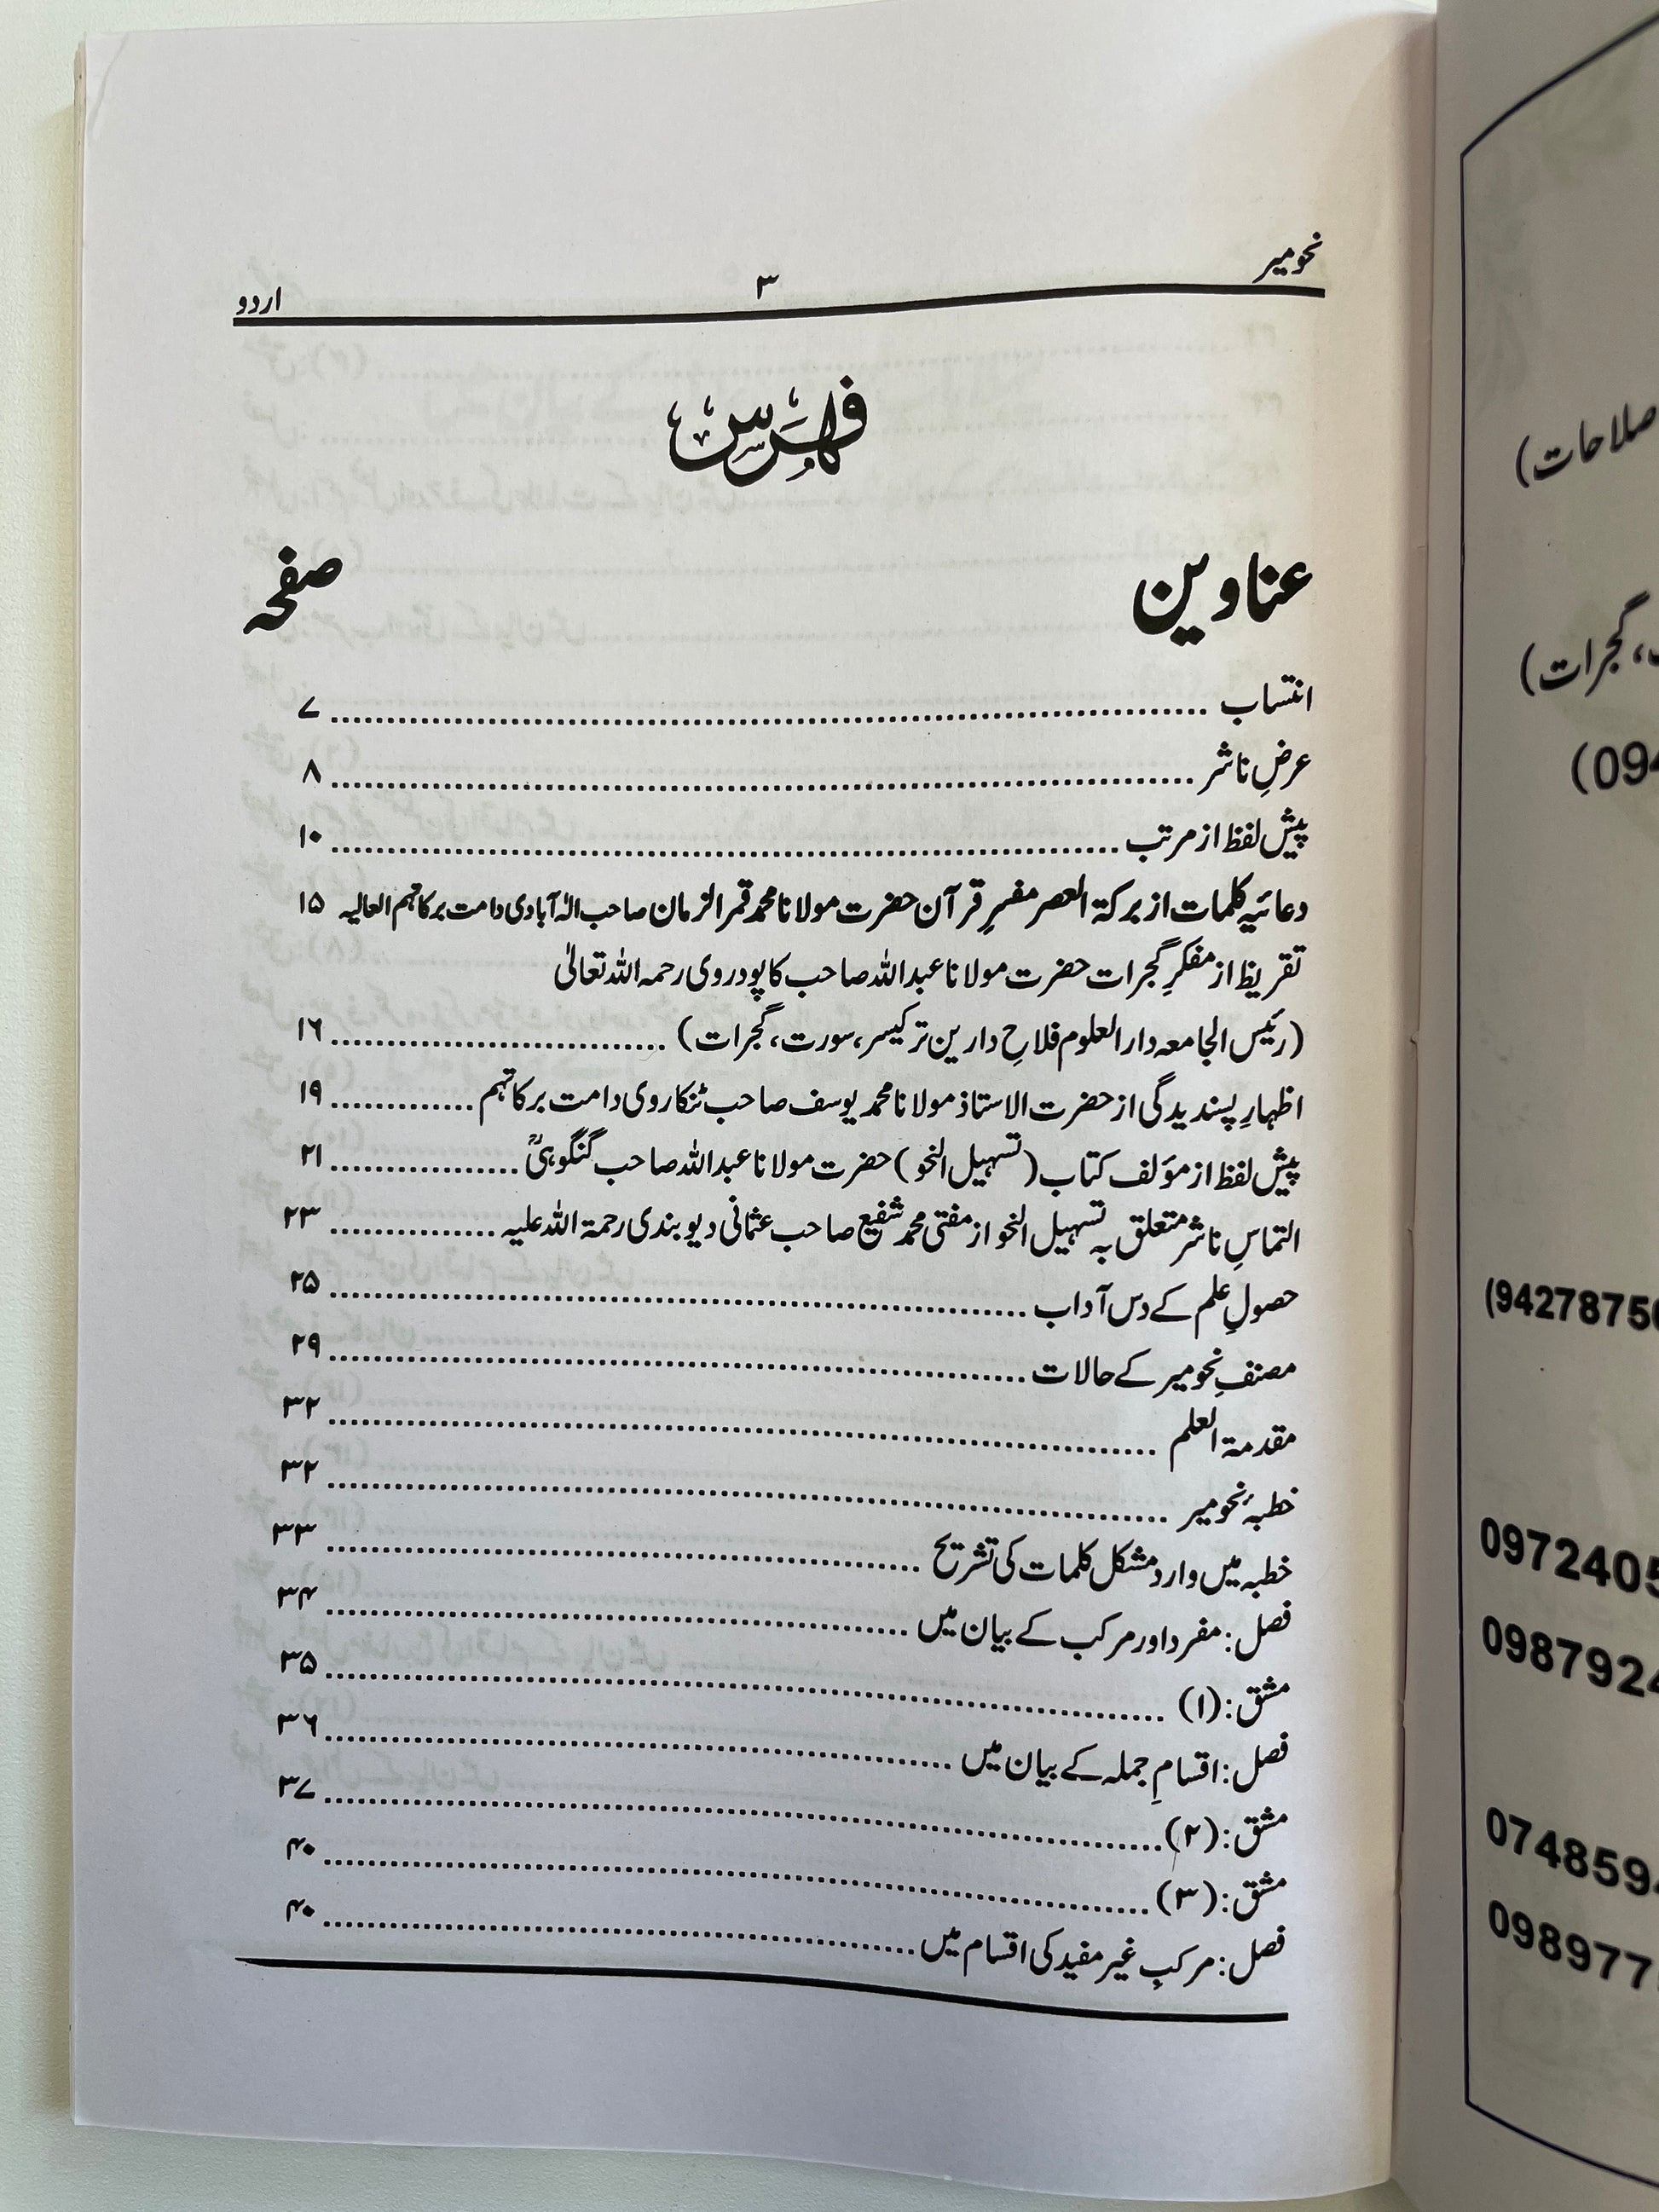 نحومیر
۳
اردو
فہرس
عناوین
صفحہ
انتساب ........ ۷
عرضِ ناشر ........ ۸
پیش لفظ از مرتب ........ ۱۰
دعائیہ کلمات از برکۃ العصر مفسرِ قرآن حضرت مولانا محمد قمر الزمان صاحب الٰہ آبادی دامت برکاتہم العالیہ ۱۵
تقریظ از مفکرِ گجرات حضرت مولانا عبد اللہ صاحب کاپودروی رحمہ اللہ تعالیٰ
(رئیس الجامعہ دار العلوم فلاحِ دارین ترکیسر، سورت، گجرات) ........ ۱۶
اظہارِ پسندیدگی از حضرت الاستاذ مولانا محمد یوسف صاحب ٹنکاروی دامت برکاتہم ........ ۱۹
پیش لفظ از مؤلف کتاب (تسہیل النحو) حضرت مولانا عبد اللہ صاحب گنگوہیؒ ........ ۲۱
التماسِ ناشر متعلق بہ تسہیل النحو از مفتی محمد شفیع صاحب عثمانی دیوبندی رحمۃ اللہ علیہ ........ ۲۳
حصولِ علم کے دس آداب ........ ۲۵
مصنفِ نحومیر کے حالات ........ ۲۹
مقدمۃ العلم ........ ۳۲
خطبۂ نحومیر ........ ۳۲
خطبہ میں وارد مشکل کلمات کی تشریح ........ ۳۳
فصل: مفرد اور مرکب کے بیان میں ........ ۳۴
مشق: (۱) ........ ۳۵
فصل: اقسامِ جملہ کے بیان میں ........ ۳۶
مشق: (۲) ........ ۳۷
مشق: (۳) ........ ۴۰
فصل: مرکبِ غیر مفید کی اقسام میں ........ ۴۰
صلاحات)
، گجرات)
(094
(9427875
097240
098792
074859
098977